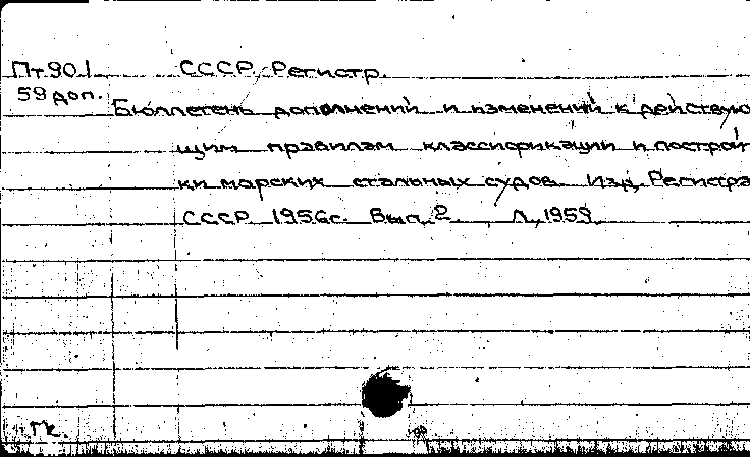 Пт90.1 СССР. Регистр.
59 доп.
Бюллетень дополнений и изменений к действую
щим правилам классификации и построй
ки морских стальных судов. Изд. Регистра
СССР 1956г. Вып. 2. Л., 1959.